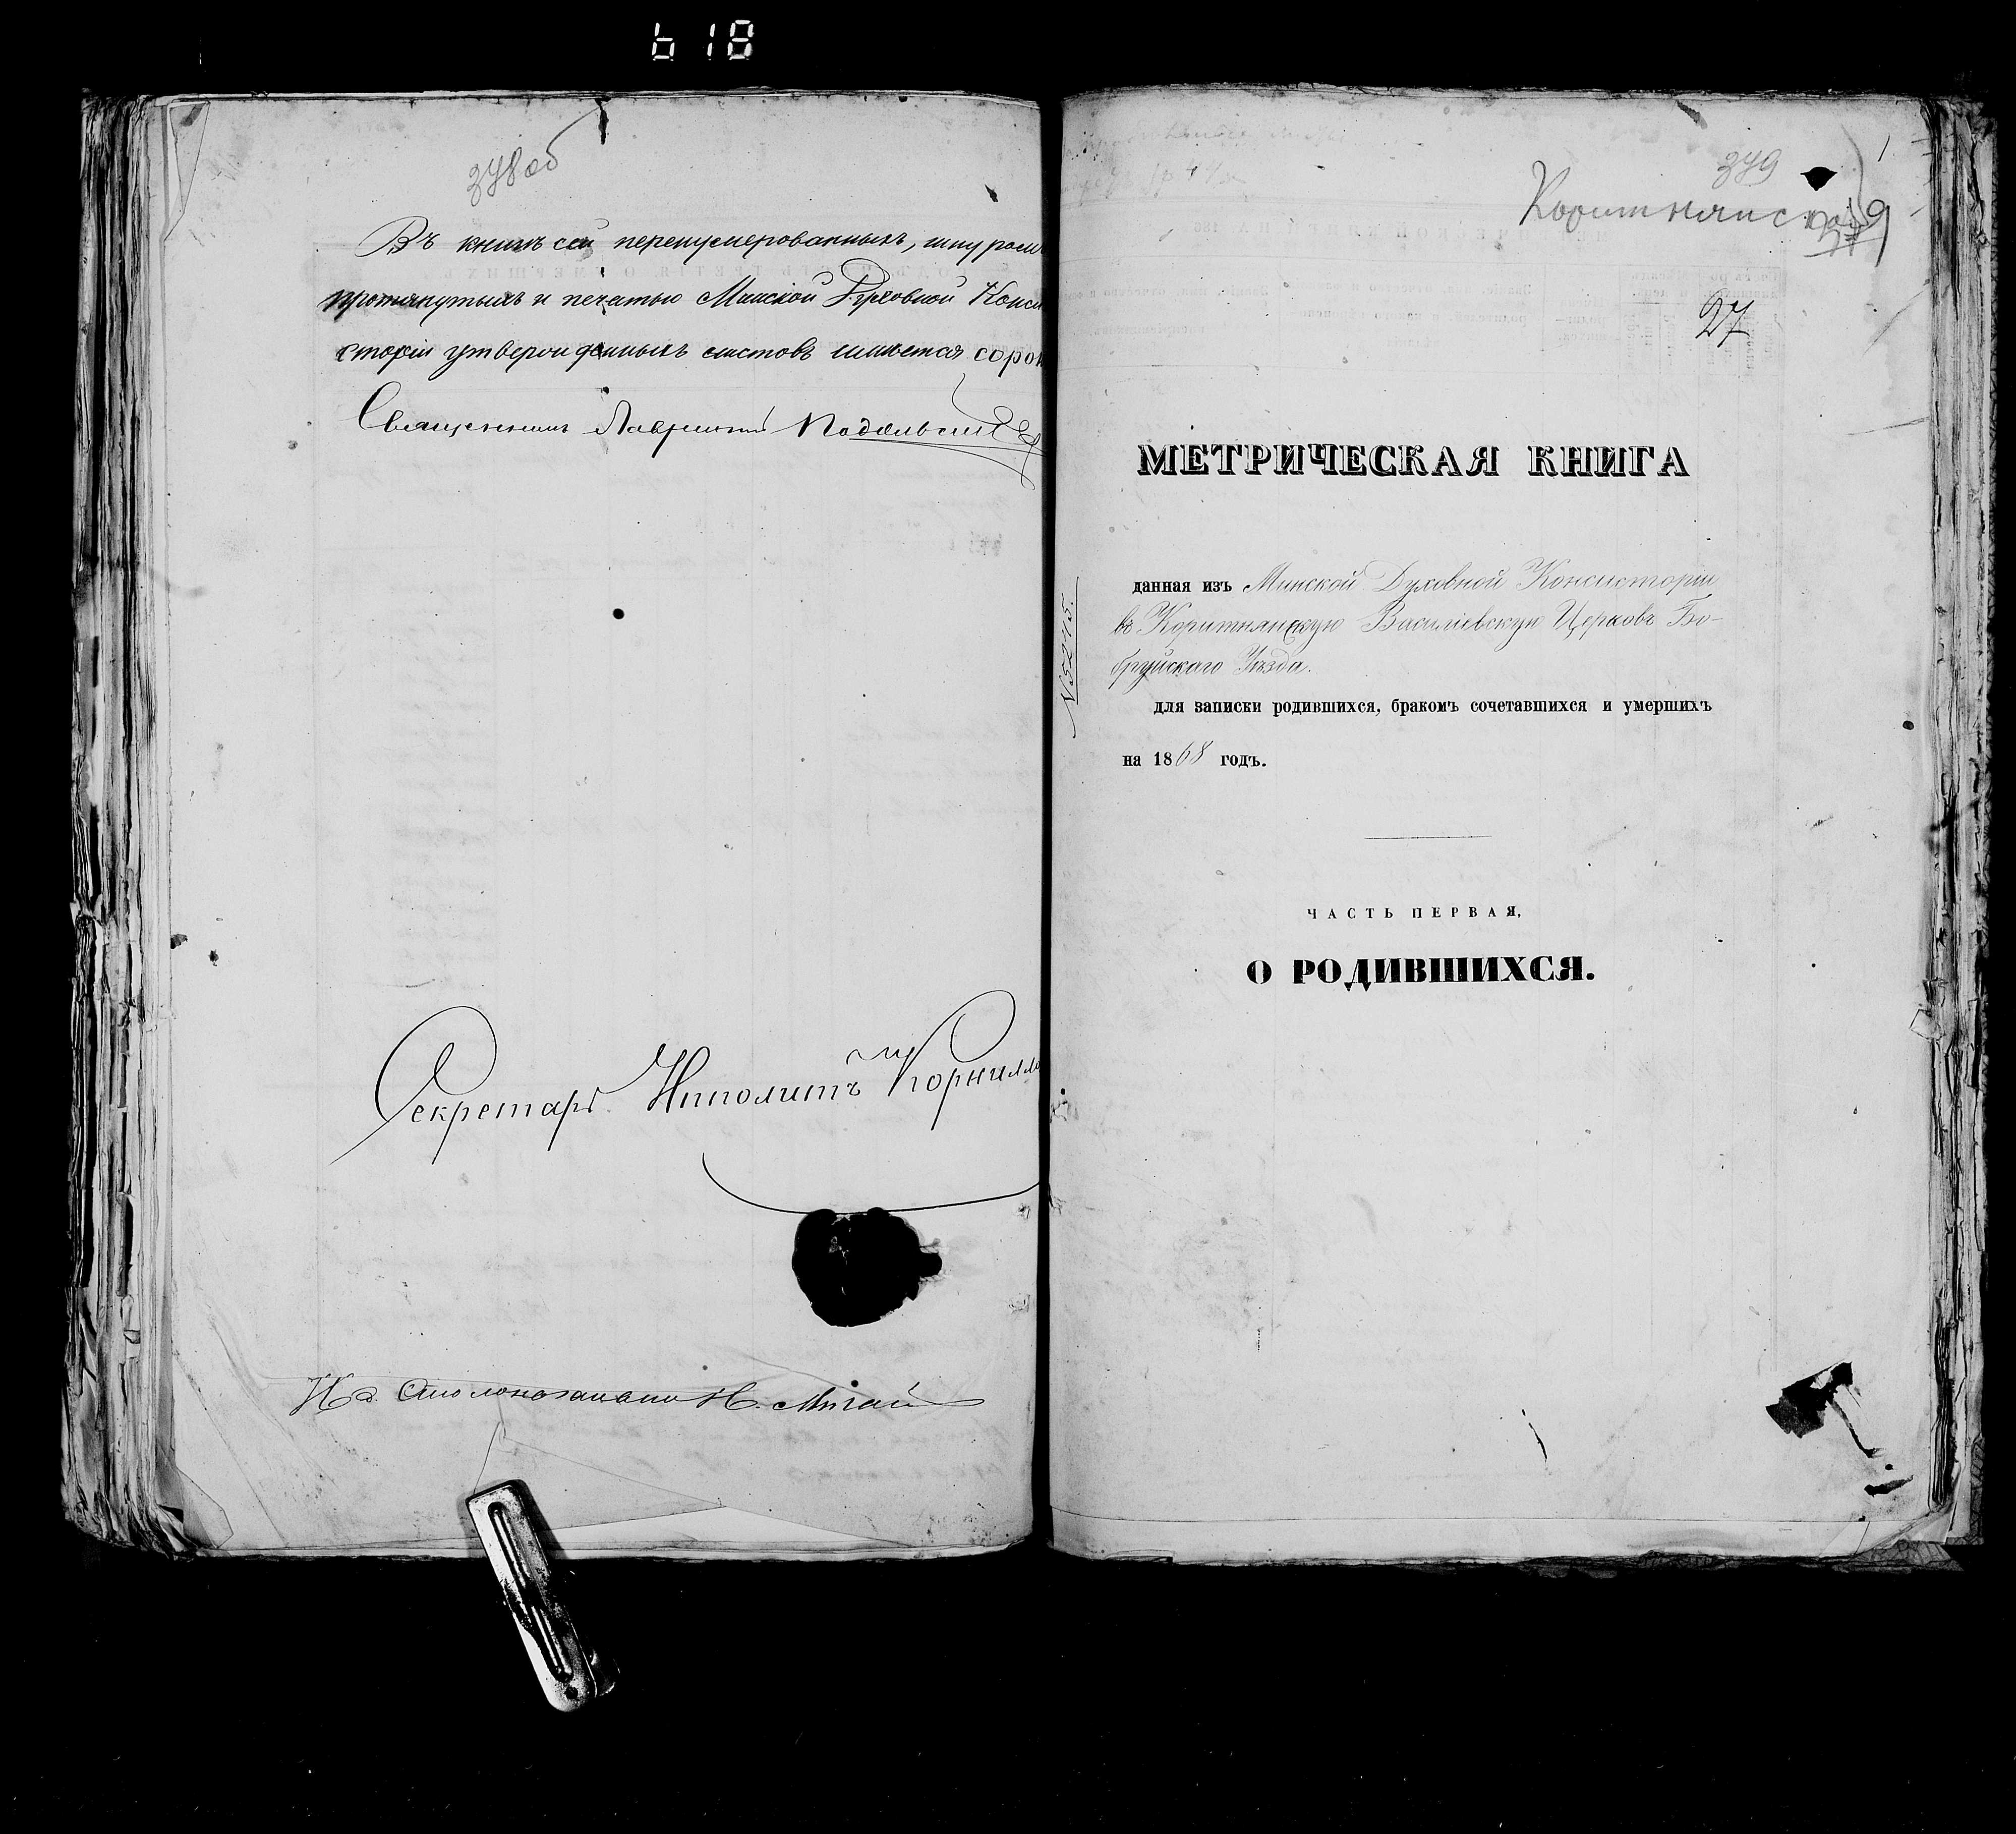 618
378 об
Въ книгѣ сей перенумерованныхъ, шнуромъ
протянутыхъ и печатью Минской Духовной Конси
сторіи утвержденныхъ листовъ имѣется сорок
Священникъ Лаврентій
Секретарь Ипполитъ Корнилло
И. д. Столоначальника
379
Коритнянской
27
МЕТРИЧЕСКАЯ КНИГА
данная изъ Минской Духовной Консисторіи
въ Коритнянскую Василіевскую Церковь Бо-
бруйскаго Уѣзда.
для записки родившихся, бракомъ сочетавшихся и умершихъ
на 1868 годъ.
N 5245.
ЧАСТЬ ПЕРВАЯ,
О РОДИВШИХСЯ.